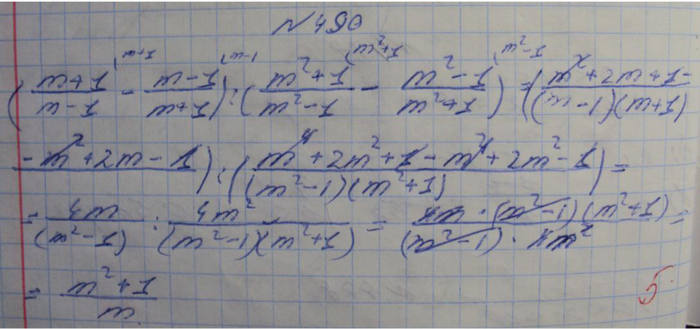 № 490
( (m+1)/(m-1) ^(m+1) - (m-1)/(m+1) ^(m-1) ) : ( (m²+1)/(m²-1) ^(m²+1) - (m²-1)/(m²+1) ^(m²-1) ) = ( (m²+2m+1-)/((m-1)(m+1))
(-m²+2m-1) ) : ( (m⁴+2m²+1-m⁴+2m²-1)/((m²-1)(m²+1)) ) =
= 4m/(m²-1) : 4m²/((m²-1)(m²+1)) = (4m·(m²-1)(m²+1))/((m²-1)·4m²) =
= (m²+1)/m
5